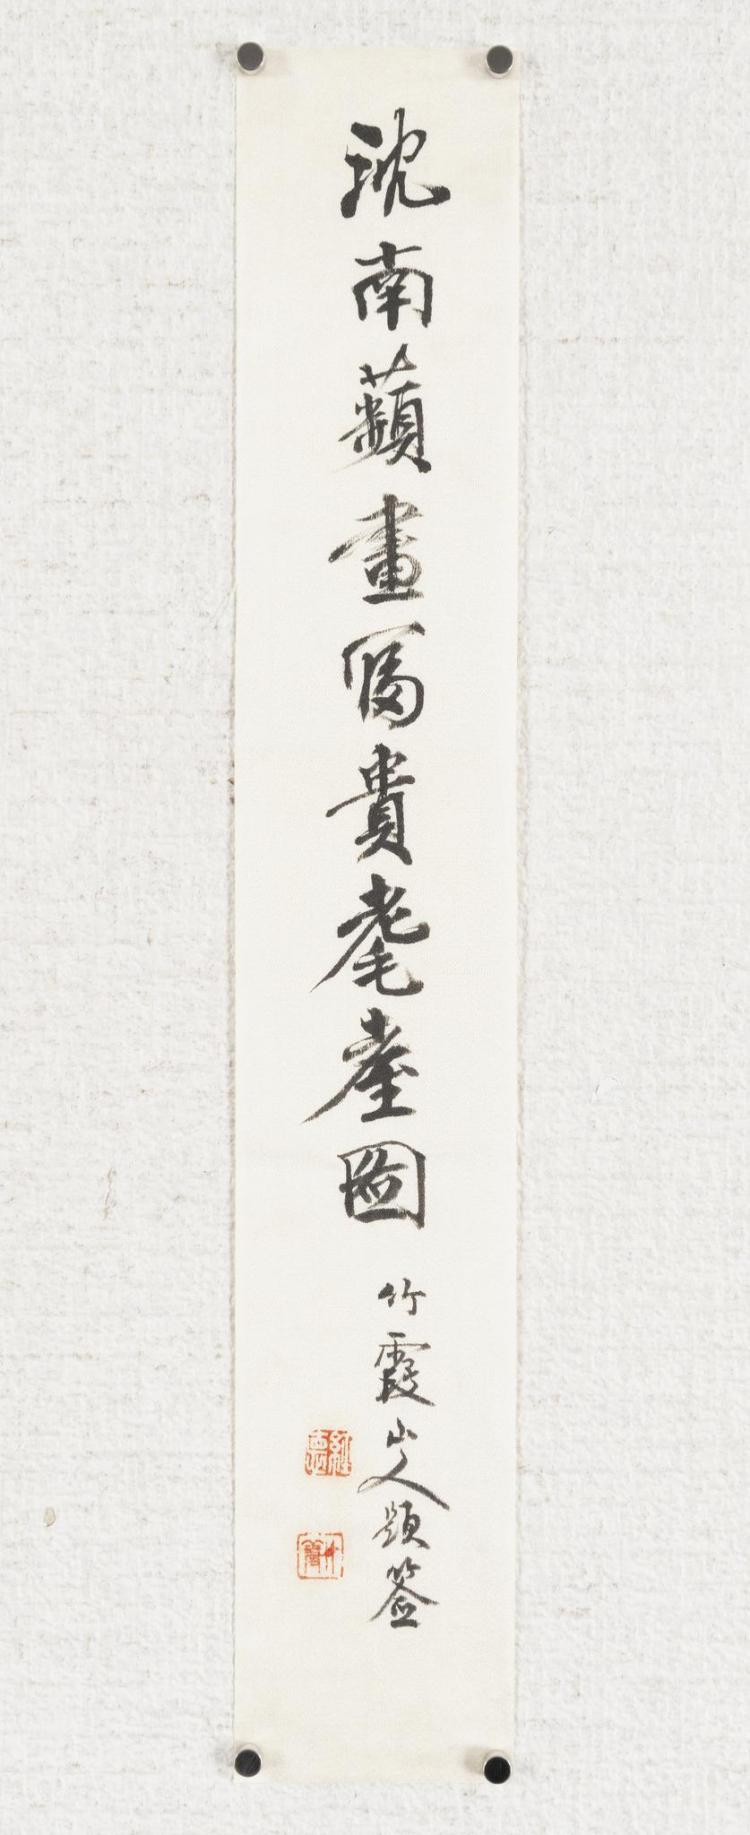 沈南蘋畫富貴耄耋圖
竹霞山人題簽